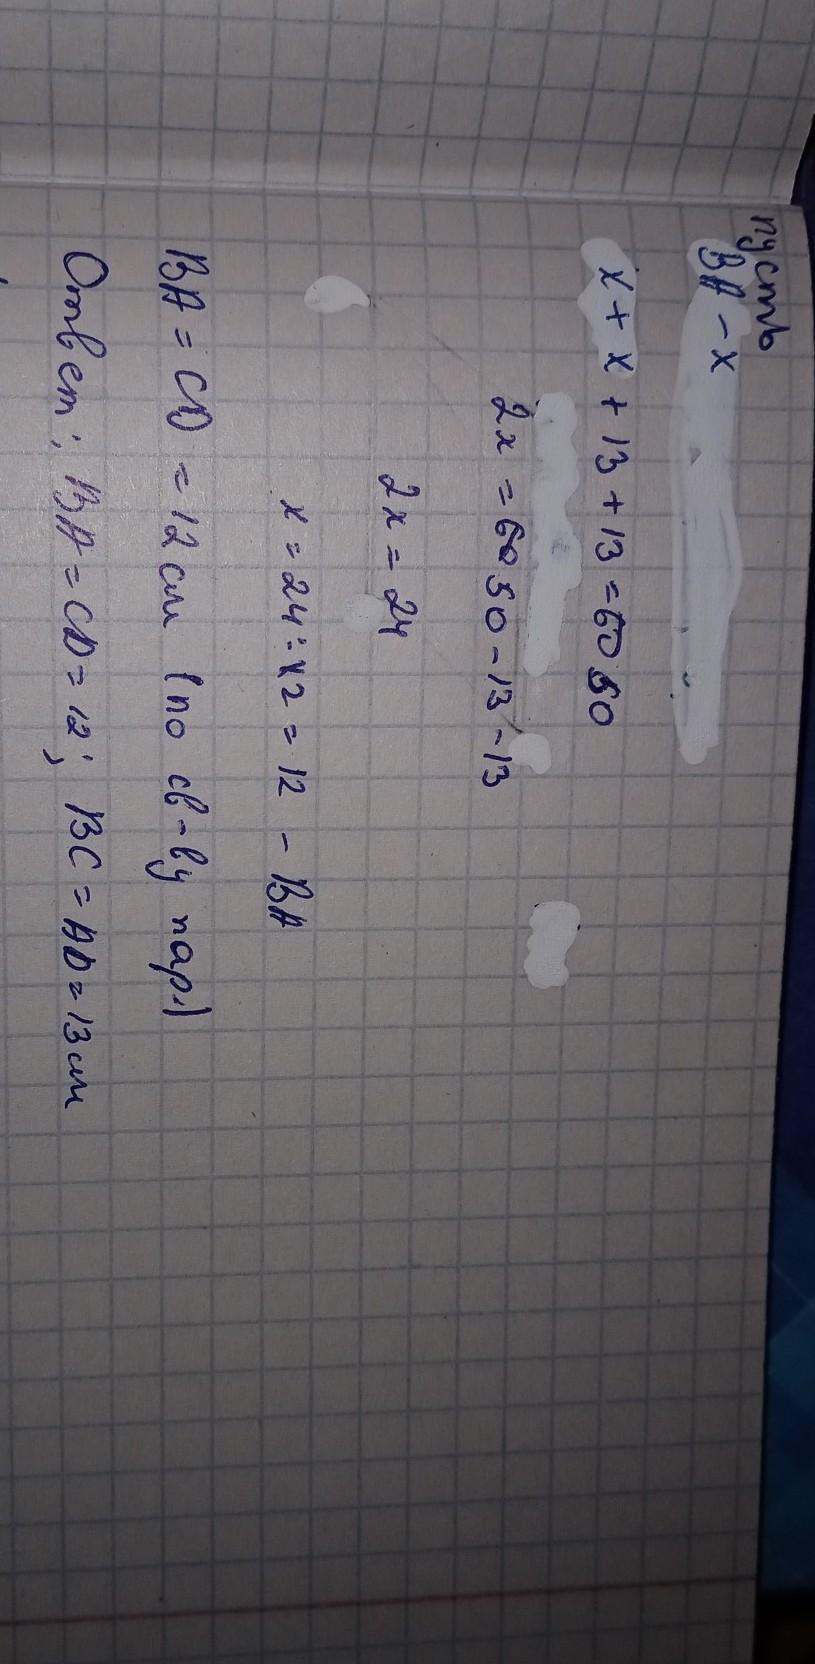 пусть
BA - x
x + x + 13 + 13 = 60 50
2x = 60 50 - 13 - 13
2x = 24
x = 24 : 2 = 12 - BA
BA = CD = 12 см (по св-ву пар.)
Ответ: BA = CD = 12; BC = AD = 13 см